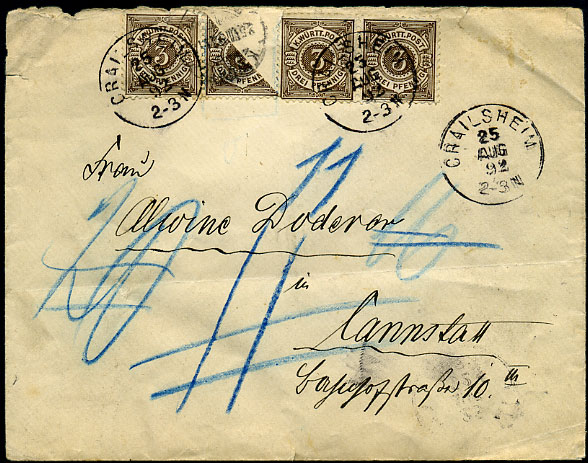 K.WÜRTT.POST
3
DREI PFENNIG
K.WÜRTT.POST
3
DREI PFENNIG
K.WÜRTT.POST
3
DREI PFENNIG
CRAILSHEIM
25
AUG
92
2-3N
CRAILSHEIM
25
AUG
92
2-3N
CRAILSHEIM
25
AUG
92
2-3N
Frau
Alwine Doderer
in
Cannstatt
Bahnhofstraße 10. III
11